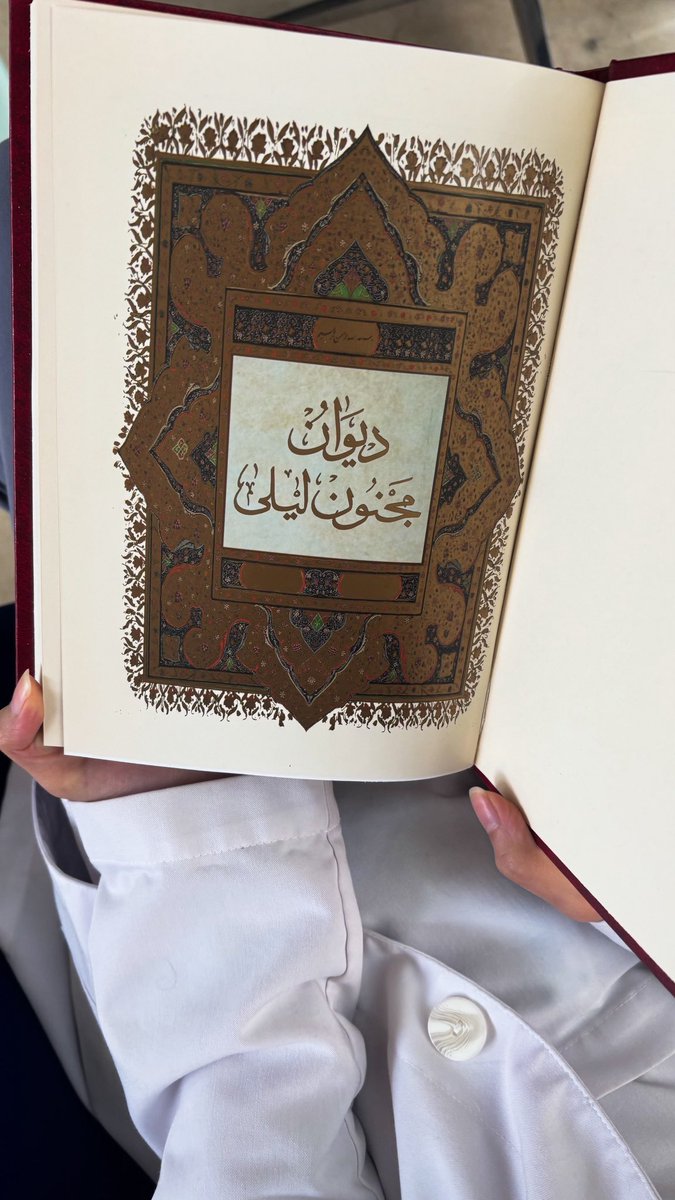 ديوانُ
مَجْنُون لَيْلى